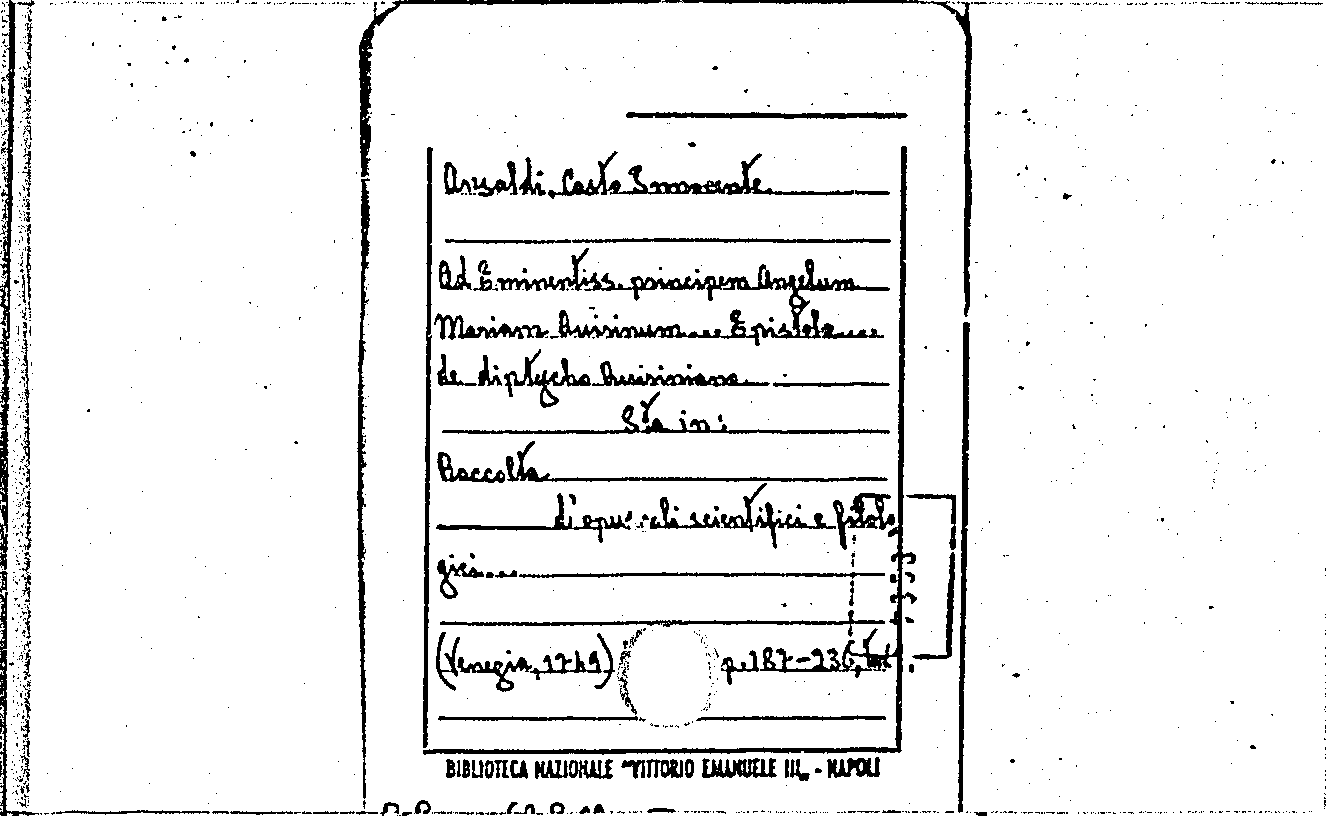 Ansaldi, Casto Innocente.
Ad Eminentiss. principem Angelum
Mariam Quirinum... Epistola....
de diptycho Quiriniano.
Sta in:
Raccolta
d'opuscoli scientifici e filolo
gici....
(Venezia, 1749) p. 187-236, tav.
BIBLIOTECA NAZIONALE "VITTORIO EMANUELE III" - NAPOLI